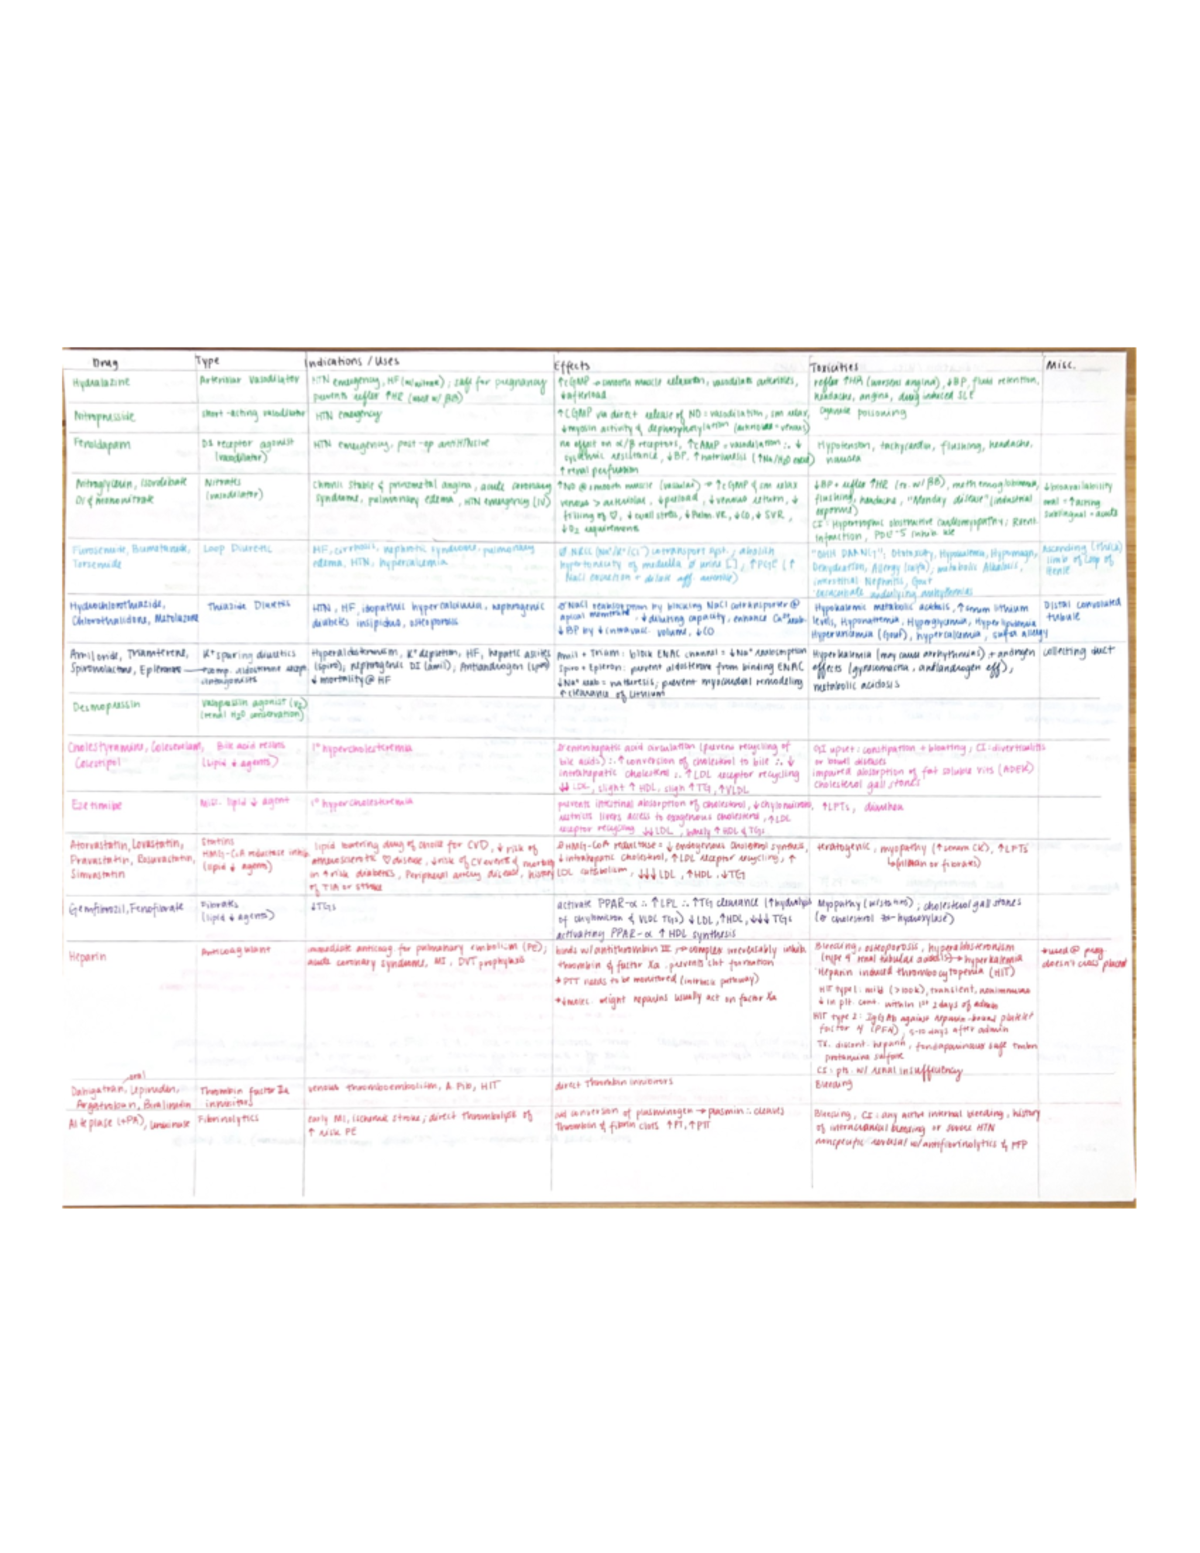 Drug Type Indications / Uses Effects Toxicities Misc.
Hydralazine
Arteriolar Vasodilator
HTN emergency, HF (w/ nitrate); safe for pregnancy
prevents reflex ↑HR (used w/ βB)
↑cGMP → smooth muscle relaxation, vasodilate arterioles,
↓afterload
reflex ↑HR (worsens angina), ↓BP, fluid retention,
headache, angina, drug induced SLE
Nitroprusside
short-acting vasodilator
HTN emergency
↑cGMP via direct release of NO: vasodilation, sm relax,
↓myosin activity & dephosphorylation (arterioles = venous)
cyanide poisoning
Fenoldapam
D1 receptor agonist
(vasodilator)
HTN emergency, post-op antiHTNsive
no effect on α/β receptors, ↑cAMP = vasodilation ∴ ↓
systemic resistance, ↓BP, ↑natriuresis (↑Na/H2O excret)
↑renal perfusion
Hypotension, tachycardia, flushing, headache,
nausea
Nitroglycerin, Isosorbide
Di & mononitrate
Nitrates
(vasodilator)
Chronic stable & prinzmetal angina, acute coronary
syndrome, pulmonary edema, HTN emergency (IV)
↑NO @ smooth muscle (vascular) → ↑cGMP & sm relax
venous > arteriolar, ↓preload, ↓venous return, ↓
filling of ♡, ↓wall stress, ↓Pulm VR, ↓CO, ↓SVR,
↓O2 requirements
↓BP = reflex ↑HR (tx. w/ βB), methemoglobinemia,
flushing, headache, "Monday disease" (industrial
exposure)
CI: Hypertrophic obstructive cardiomyopathy, Recent
Infarction, PDE-5 inhib use
↓bioavailability
oral = ↑dosing
sublingual = acute
Furosemide, Bumetanide,
Torsemide
Loop Diuretic
HF, cirrhosis, nephritic syndrome, pulmonary
edema, HTN, hypercalcemia
NKCC (Na+/K+/Cl-) cotransport syst., abolish
hypertonicity of medulla & urine [ ], ↑PGE (↑
NaCl excretion + dilate aff arteriole)
"OHH DAANG!": Ototoxicity, Hypokalemia, Hypomagn,
Dehydration, Allergy (sulfa), metabolic Alkalosis,
interstitial Nephritis, Gout
*exacerbate underlying arrhythmias
Ascending (thick)
limb of Loop of
Henle
Hydrochlorothiazide,
Chlorothalidone, Metolazone
Thiazide Diuretics
HTN, HF, idiopathic hypercalciuria, nephrogenic
diabetes insipidus, osteoporosis
NaCl reabsorption by blocking NaCl cotransporter @
apical membrane ↓diluting capacity, enhance Ca²⁺ reab.
↓BP by ↓intravasc. volume, ↓CO
Hypokalemic metabolic acidosis, ↑serum lithium
levels, Hyponatremia, Hyperglycemia, Hyperlipidemia
Hyperuricemia (Gout), hypercalcemia, sulfa allergy
Distal convoluted
tubule
Amiloride, Triamterene,
Spironolactone, Eplerenone
K+ sparing diuretics
comp. aldosterone recep.
antagonists
Hyperaldosteronism, K+ depletion, HF, hepatic ascites
(spiro), nephrogenic DI (amil), Antiandrogen (spiro)
↓ mortality @ HF
Amil + Triam: block ENAC channel = ↓Na+ reabsorption
Spiro + Epleron: prevent aldosterone from binding ENAC
↓Na+ reab = natriuresis; prevent myocardial remodeling
↑clearance of Lithium
Hyperkalemia (may cause arrhythmias) + androgen
effects (gynecomastia, antiandrogen eff),
metabolic acidosis
collecting duct
Desmopressin
Vasopressin agonist (V2)
(renal H2O conservation)
Cholestyramine, Colesevelam,
Colestipol
Bile acid resins
(lipid ↓ agents)
1° hypercholesteremia
enterohepatic acid circulation (prevent recycling of
bile acids) ∴ ↑conversion of cholesterol to bile ∴ ↓
intrahepatic cholesterol ∴ ↑LDL receptor recycling
↓↓LDL, slight ↑HDL, slight ↑TG, ↑VLDL
GI upset: constipation + bloating; CI: diverticulitis
or bowel diseases
impaired absorption of fat soluble vits (ADEK)
cholesterol gall stones
Ezetimibe
Misc. lipid ↓ agent
1° hypercholesteremia
prevents intestinal absorption of cholesterol, ↓chylomicron,
restricts livers access to exogenous cholesterol, ↑LDL
receptor recycling ↓↓LDL, barely ↑HDL & TGs
↑LFTs, diarrhea
Atorvastatin, Lovastatin,
Pravastatin, Rosuvastatin,
Simvastatin
Statins
HMG-CoA reductase inhib
(lipid ↓ agents)
lipid lowering drug of choice for CVD, ↓ risk of
atherosclerotic ♡disease, ↓risk of CV events & mortality
in ↑risk diabetes, Peripheral artery disease, history
of TIA or stroke
HMG-CoA reductase = ↓ endogenous cholesterol synthesis,
↓intrahepatic cholesterol, ↑LDL receptor recycling, ↑
LDL catabolism, ↓↓↓LDL, ↑HDL, ↓TG
teratogenic, myopathy (↑serum CK), ↑LFTs
Gemfibrozil, Fenofibrate
Fibrates
(lipid ↓ agents)
↓TGs
activate PPAR-α ∴ ↑LPL ∴ ↑TG clearance (↑hydrolysis
of chylomicron & VLDL TGs) ↓LDL, ↑HDL, ↓↓↓TGs
activating PPAR-α ↑HDL synthesis
Myopathy (w/statins); cholesterol gall stones
(∅ cholesterol 7α-hydroxylase)
Heparin
Anticoagulant
immediate anticoag for pulmonary embolism (PE),
acute coronary syndrome, MI, DVT prophylaxis
binds w/ antithrombin III → complex irreversably inhib
thrombin & factor Xa, prevents clot formation
*PTT needs to be monitored (intrinsic pathway)
*↓molec. weight heparins usually act on factor Xa
Bleeding, osteoporosis, hyperaldosteronism
(type 4 renal tubular acidosis) → hyperkalemia
Heparin induced thrombocytopenia (HIT)
HIT type 1: mild (>100k), transient, nonimmune
↓ in plt. count within 1st 2 days of admin
HIT type 2: IgG Ab against heparin-bound platelet
factor 4 (PF4), 5-10 days after admin
TX: discont. heparin, fondaparinux
protamine sulfate
CI: pts. w/ renal insufficiency
*used @ preg
doesn't cross placenta
oral
Dabigatran, Lepirudin,
Argatroban, Bivalirudin
Thrombin factor IIa
inhibitors
venous thromboembolism, A Fib, HIT
direct Thrombin inhibitors
Bleeding
Alteplase (tPA), Urokinase
Fibrinolytics
early MI, ischemic stroke; direct thrombolysis of
↑ risk PE
cat conversion of plasminogen → plasmin ∴ cleaves
Thrombin & fibrin clots ↑PT, ↑PTT
Bleeding, CI: any active internal bleeding, history
of intracranial bleeding or severe HTN
nonspecific reversal w/ antifibrinolytics & FFP